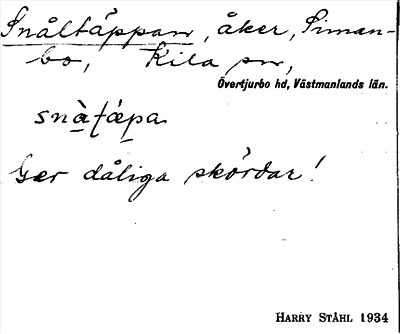 Snåltäppan, åker, Siman-
bo, Kila sn,
Övertjurbo hd, Västmanlands län.
snà̱ṭá̱pa
Ger dåliga skördar!
HARRY STÅHL 1934